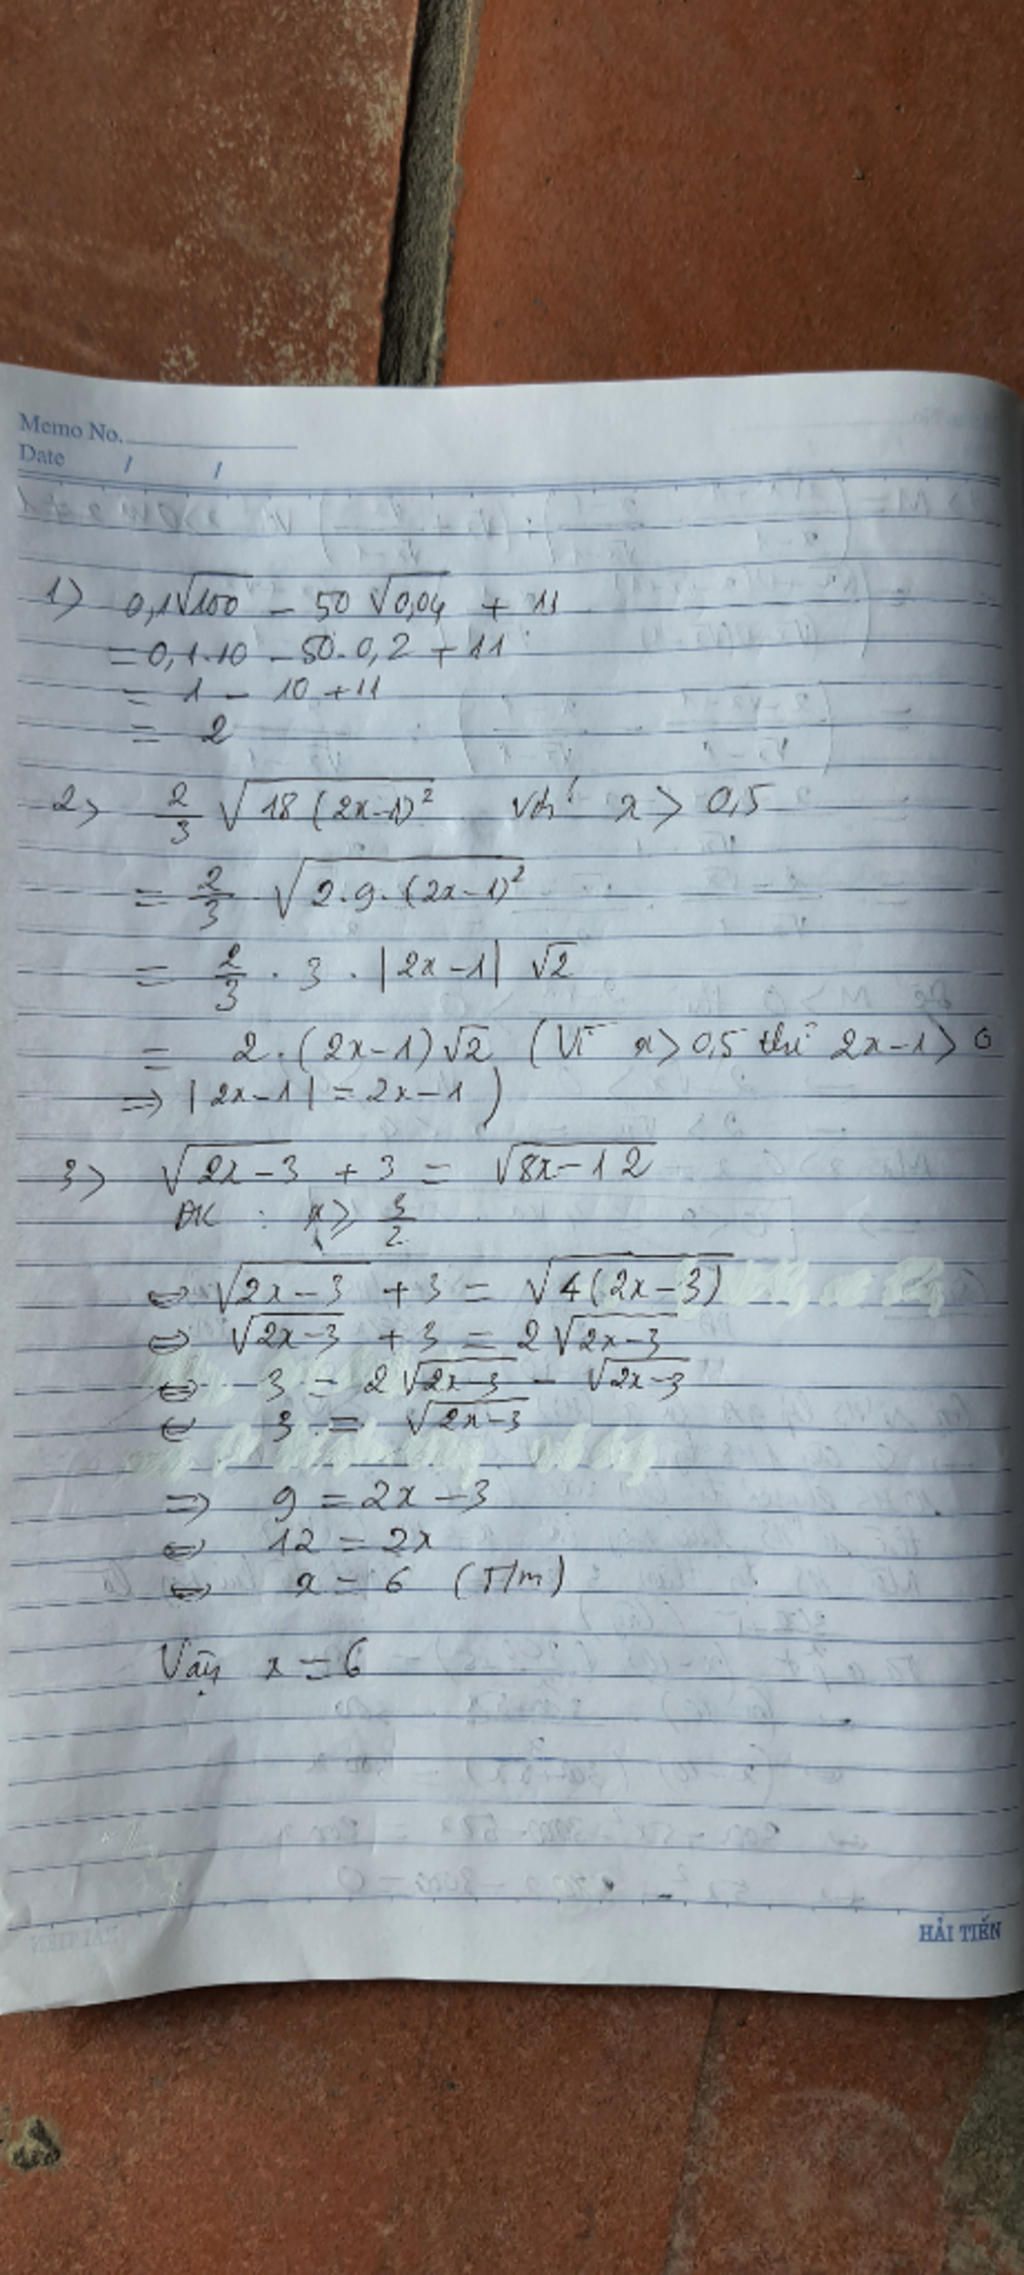 Memo No.
Date / /
1) 0,1√100 - 50√0,04 + 11
= 0,1.10 - 50.0,2 + 11
= 1 - 10 + 11
= 2
2) 2/3 √18(2x-1)² với x > 0,5
= 2/3 √2.9.(2x-1)²
= 2/3 . 3 . |2x-1| √2
= 2.(2x-1)√2 (Vì x > 0,5 thì 2x-1 > 0
⇒ |2x-1| = 2x-1)
3) √2x-3 + 3 = √8x-12
ĐK : x ≥ 3/2
⇔ √2x-3 + 3 = √4(2x-3)
⇔ √2x-3 + 3 = 2√2x-3
⇔ 3 = 2√2x-3 - √2x-3
⇔ 3 = √2x-3
⇒ 9 = 2x-3
⇔ 12 = 2x
⇔ x = 6 (T/m)
Vậy x = 6
HẢI TIẾN